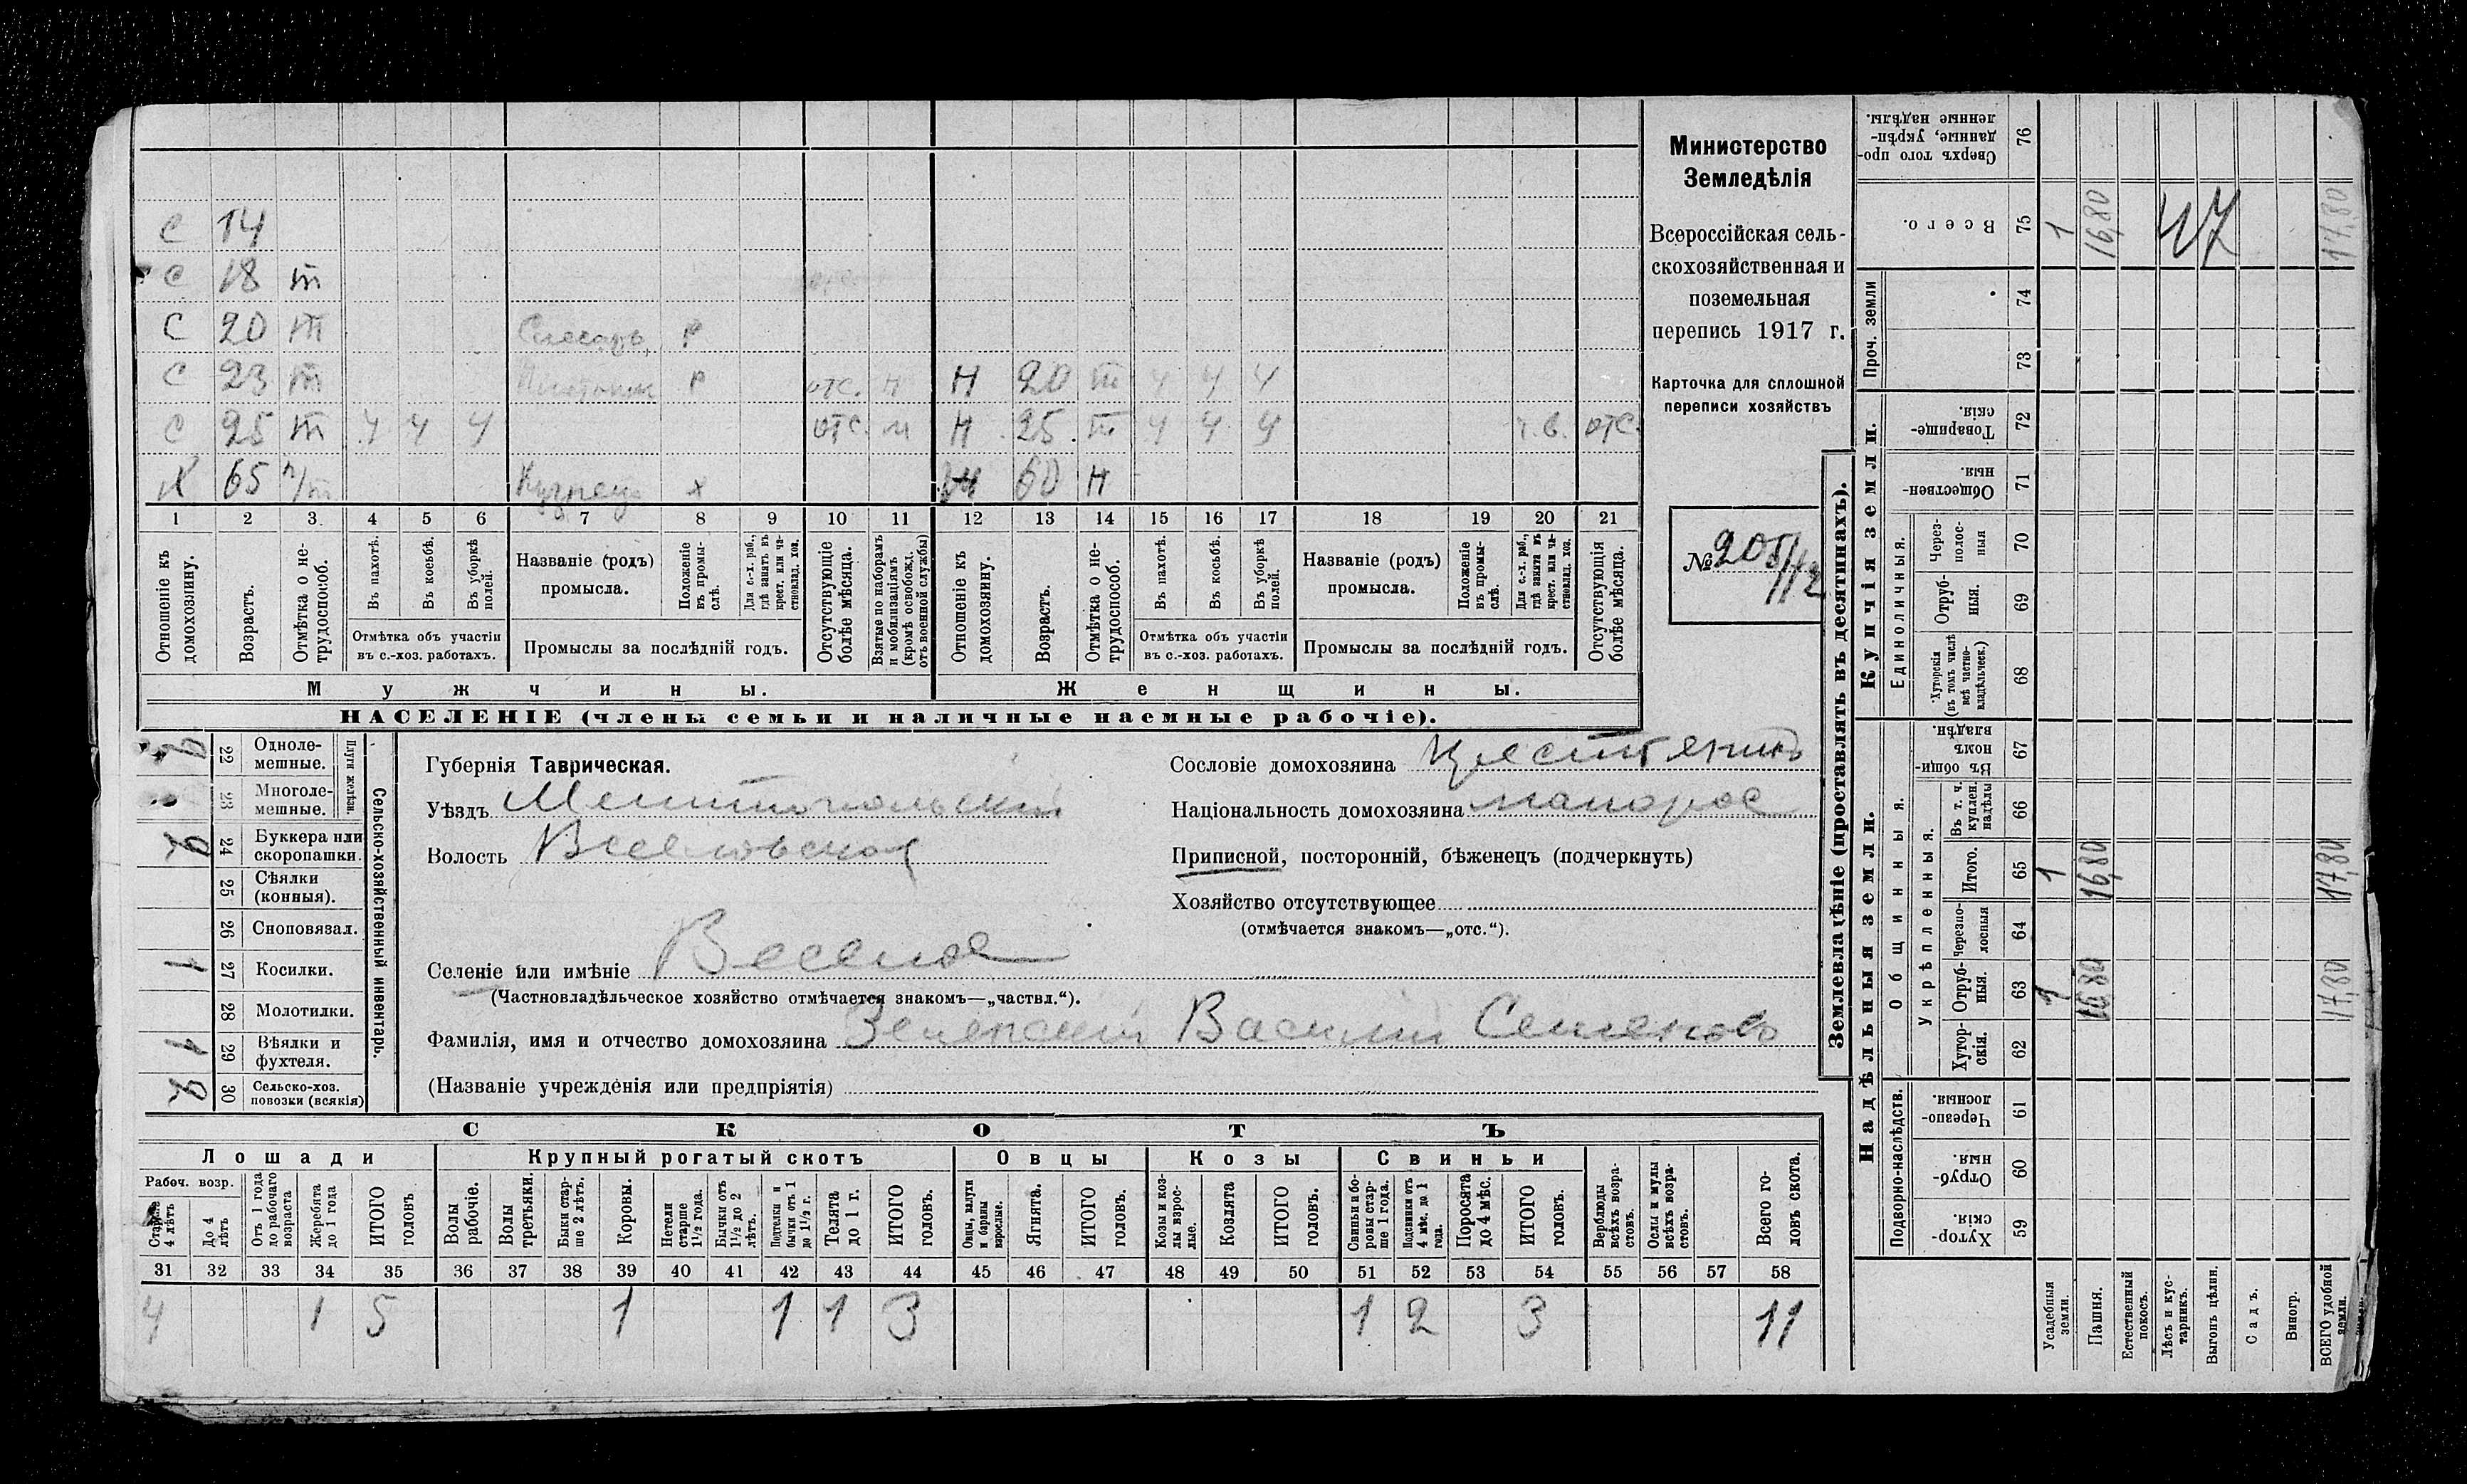 С 14
С 18 т
С 20 т Слесарь Р
С 23 т Р отс. Н 20 т ч ч ч
С 25 т ч ч ч отс. м Н 25 т ч ч ч ч.в. отс.
Х 65 п/т Кузнец х 60 н
1 2 3 4 5 6 7 8 9 10 11 12 13 14 15 16 17 18 19 20 21
Отношеніе къ домохозяину.
Возрастъ.
Отмѣтка о не-трудоспособ.
Въ пахотѣ.
Въ косьбѣ.
Въ уборкѣ полей.
Отмѣтка объ участіи
въ с.-хоз. работахъ.
Названіе (родъ)
промысла.
Положеніе въ промы-слѣ.
Для с.-х. раб., гдѣ занятъ въ крест. или ча-стновлад. хоз.
Промыслы за послѣдній годъ.
Отсутствующіе болѣе мѣсяца.
Взятые по наборамъ и мобилизаціямъ (кромѣ освобожд. отъ военной службы)
Отношеніе къ домохозяину.
Возрастъ.
Отмѣтка о не-трудоспособ.
Въ пахотѣ.
Въ косьбѣ.
Въ уборкѣ полей.
Отмѣтка объ участіи
въ с.-хоз. работахъ.
Названіе (родъ)
промысла.
Положеніе въ промы-слѣ.
Для с.-х. раб., гдѣ занята въ крест. или ча-стновлад. хоз.
Промыслы за послѣдній годъ.
Отсутствующія болѣе мѣсяца.
Мужчины.
Женщины.
НАСЕЛЕНІЕ (члены семьи и наличные наемные рабочіе).
Министерство
Земледѣлія
Всероссійская сель-
скохозяйственная и
поземельная
перепись 1917 г.
Карточка для сплошной
переписи хозяйствъ
№
Сельско-хозяйственный инвентарь.
Плуги желѣзн.
22 Одноле-
мешные.
23 Многоле-
мешные.
24 Буккера или
скоропашки.
25 Сѣялки
(конныя).
26 Сноповязал.
1 27 Косилки.
28 Молотилки.
1 29 Вѣялки и
фухтеля.
30 Сельско-хоз.
повозки (всякія)
Губернія Таврическая.
Уѣздъ Мелитопольскій
Волость Веселовская
Селеніе или имѣніе Веселое
(Частновладѣльческое хозяйство отмѣчается знакомъ—„частвл.“).
Фамилія, имя и отчество домохозяина Зеленскій Василій Семеновъ
(Названіе учрежденія или предпріятія)
Сословіе домохозяина Крестьянинъ
Національность домохозяина малорос
Приписной, посторонній, бѣженецъ (подчеркнуть)
Хозяйство отсутствующее
(отмѣчается знакомъ—„отс.“).
СКОТЪ
Лошади Крупный рогатый скотъ Овцы Козы Свиньи
Рабоч. возр.
Старше 4 лѣтъ
До 4 лѣтъ
Отъ 1 года до рабочаго возраста
Жеребята до 1 года
ИТОГО головъ
Волы рабочіе.
Волы третьяки.
Быки стар-ше 2 лѣтъ.
Коровы.
Нетели старше 1½ года.
Бычки отъ 1½ до 2 лѣтъ.
Подтелки и бычки отъ 1 до 1½ г.
Телята до 1 г.
ИТОГО головъ.
Овцы, валухи и бараны взрослые.
Ягнята.
ИТОГО головъ.
Козы и коз-лы взрос-лые.
Козлята
ИТОГО головъ.
Свиньи и бо-ровы стар-ше 1 года.
Подсвинки отъ 4 мѣс. до 1 года.
Поросята до 4 мѣс.
ИТОГО головъ.
Верблюды всѣхъ возра-стовъ.
Ослы и мулы всѣхъ возра-стовъ.
Всего го-ловъ скота.
31 32 33 34 35 36 37 38 39 40 41 42 43 44 45 46 47 48 49 50 51 52 53 54 55 56 57 58
4 1 5 1 1 1 3 1 2 3 11
Землевладѣніе (проставлять въ десятинахъ).
Надѣльныя земли.
Купчія земли.
Проч. земли
Подворно-наслѣдств.
Общинныя.
Укрѣпленныя.
Единоличныя.
Сверхъ того про-данные, укрѣп-ленные надѣлы. 76
Всего. 75 1 16,80 17,80
74
73
Товарище-скія. 72
Обществен-ныя. 71
Через-полос-ныя 70
Отруб-ныя. 69
Хуторскія (въ томъ числѣ всѣ частно-владѣльческ.) 68
Въ общин-номъ владѣн. 67
Въ т. ч. куплен. надѣлы 66
Итого. 65 1 16,80 17,80
Черезпо-лосныя 64
Отруб-ныя. 63 1 16,80 17,80
Хутор-скія. 62
Черезпо-лосныя. 61
Отруб-ныя. 60
Хутор-скія. 59
Усадебныя земли.
Пашня.
Естественный покосъ.
Лѣсъ и кус-тарникъ.
Выгонъ цѣлин.
Садъ.
Виногр.
ВСЕГО удобной земли.